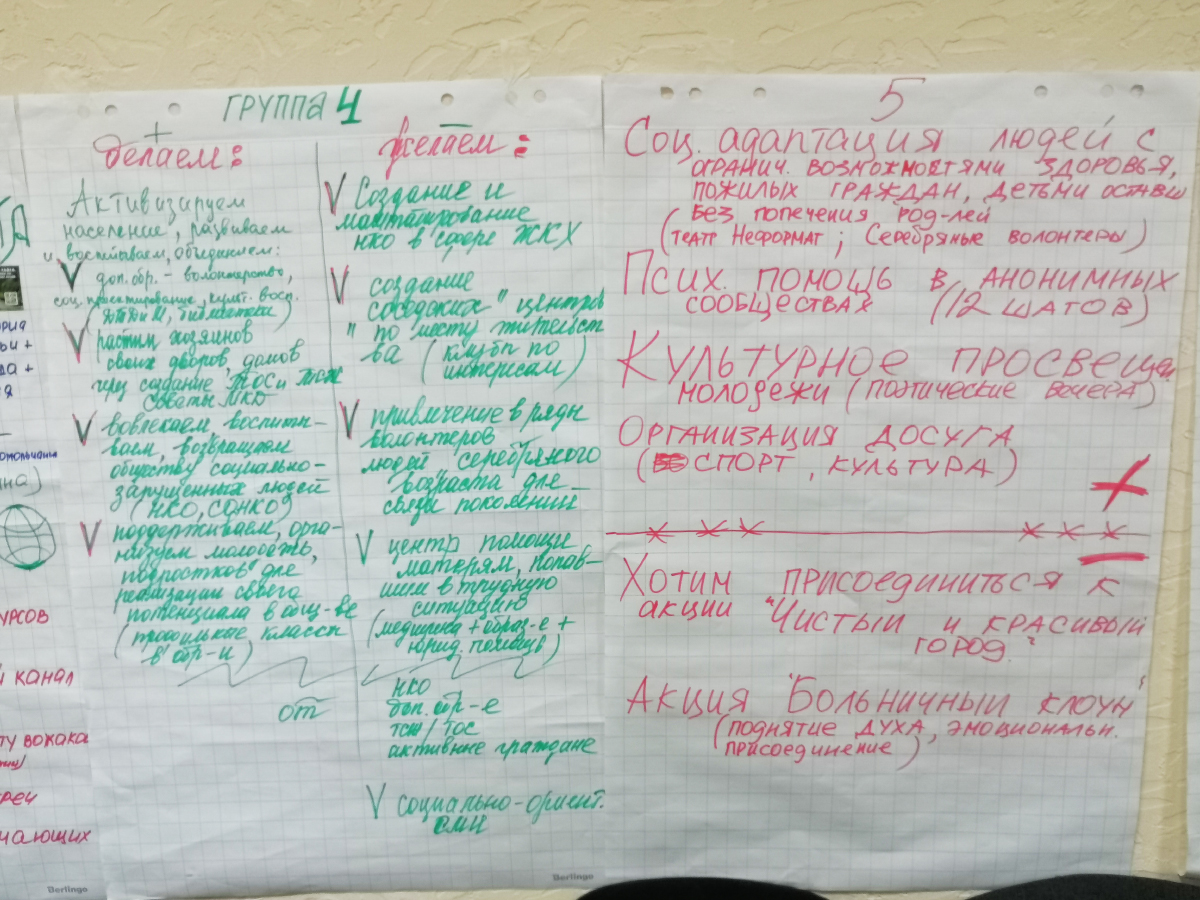 ТА
ерид
ьи +
да +
я
отольчании
на)
УРСОВ
й канал
ту вожака
рей
чающих
Berlingo
ГРУППА 4
+
делаем:
Активизируем
население, развиваем
и воспитываем, объединяем:
V доп. обр. - волонтерство,
соц. проектирование, культ. восп.
библиотеки)
V растим хозяинов
своих дворов, домов
через создание ТОС и ТСЖ
Советы МКД
V вовлекаем воспиты-
ваем, возвращаем
обществу социально-
запущенных людей
(НКО, СОНКО)
V поддерживаем, орга-
низуем молодежь,
подростков для
реализации своего
потенциала в общ-ве
(профильные классы
в обр-и)
от
–
желаем:
V Создание и
масштабирование
НКО в сфере ЖКХ
V создание
"соседских" центров
по месту жительст
ва (клубы по
интересам)
V привлечение в ряды
волонтеров
людей "серебряного
возраста для
связи поколений
V центр помощи
матерям, попав-
шим в трудную
ситуацию
(медицина + образ-е +
юрид. помощь)
НКО
доп. обр-е
тсж / ТОС
активные граждане
V социально-ориент.
СМИ
Berlingo
5
Соц. адаптация людей с
огранич. возможностями здоровья,
пожилых граждан, детьми оставш
без попечения род-лей
(театр Неформат ; Серебряные волонтеры)
Псих. помощь в анонимных
сообществах (12 шагов)
Культурное просвещен
молодежи (поэтические вечера)
Организация досуга
(спорт, культура)
+
–
Хотим присоединиться к
акции "Чистый и красивый
город."
Акция "Больничный клоун"
(поднятие духа, эмоциональн.
присоединение)